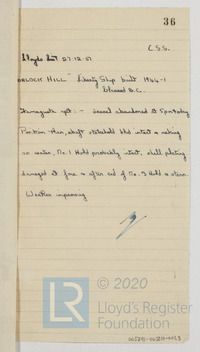 36
C.S.S.
Lloyds List 27-12-57
"ORLOCK HILL" Liberty Ship built 1944-1
B.C.
Famagusta rpt:- vessel abandoned at
Position - Plan, aft stokehold bhd intact & making
no water, No. 1 Hold probably intact, shell plating
damaged at fore & after end of No. 3 Hold &
Weather improving
© 2020
LR Lloyd's Register
Foundation